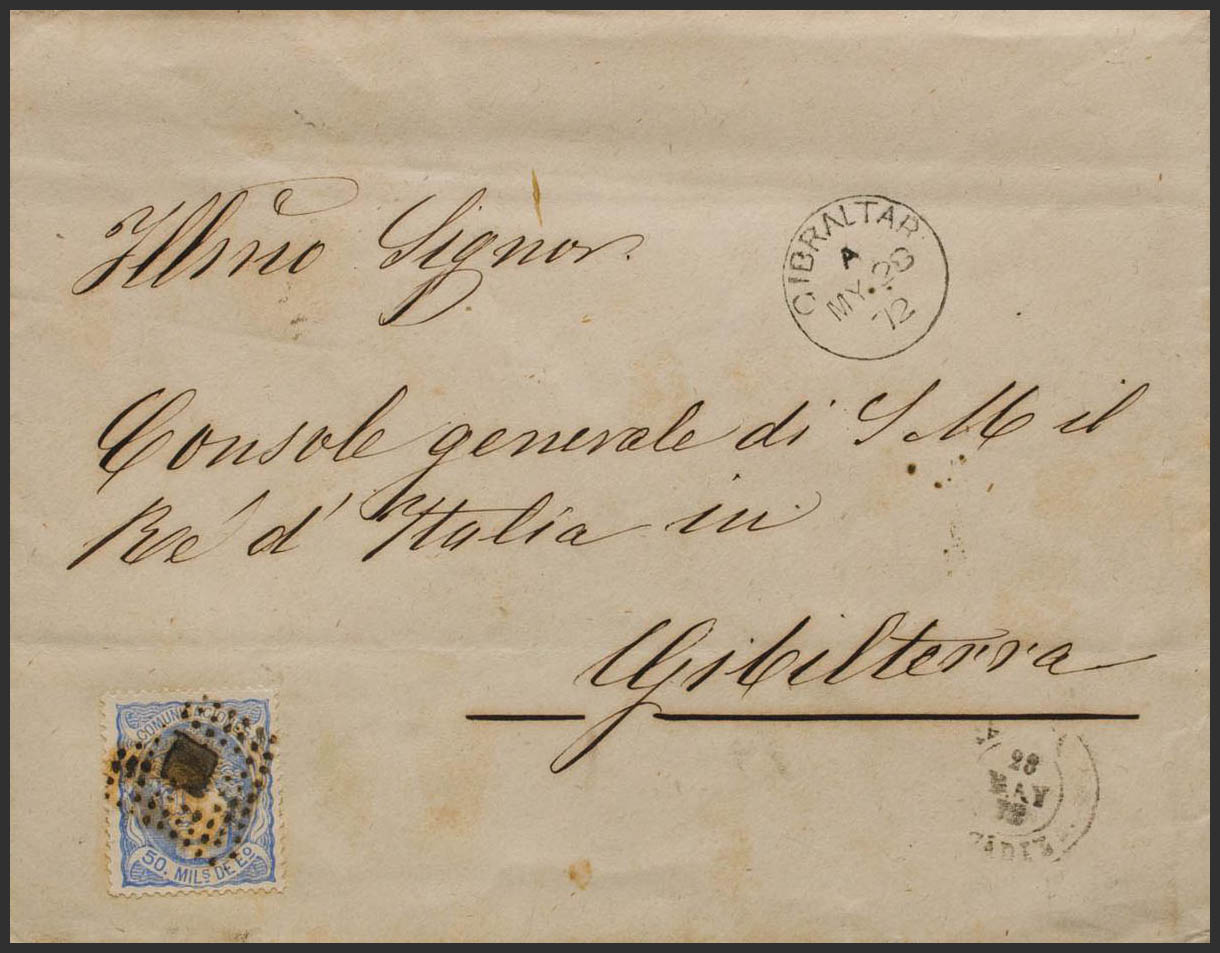 Illmo Signor
GIBRALTAR
A
MY. 28
72
Console generale di S M il
Re d' Italia in
Gibilterra
28
MAY
CADIZ
COMUNICACIONES
50. MILs DE Eo